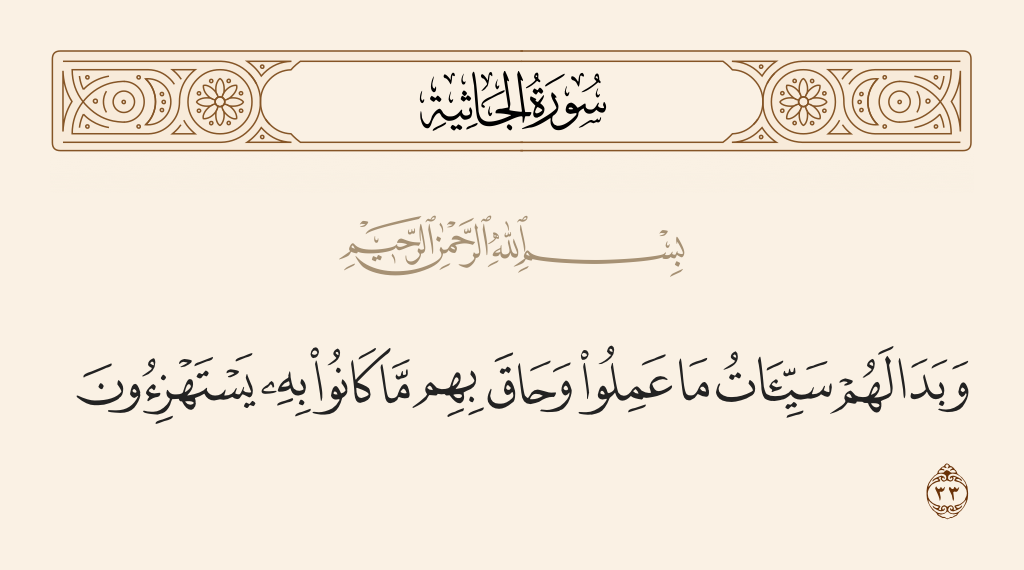 سُورَةُ الجَاثِيةِ
بِسْمِ ٱللَّهِ ٱلرَّحْمَٰنِ ٱلرَّحِيمِ
وَبَدَا لَهُمْ سَيِّـَٔاتُ مَا عَمِلُوا۟ وَحَاقَ بِهِم مَّا كَانُوا۟ بِهِۦ يَسْتَهْزِءُونَ
٣٣